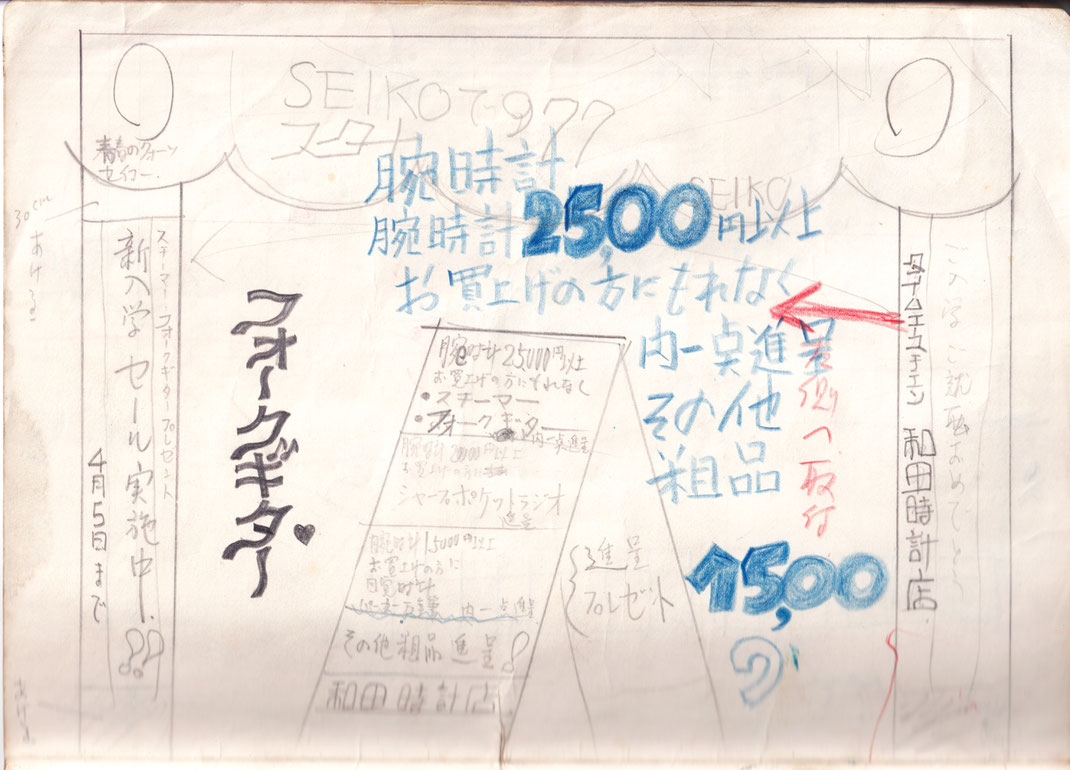 SEIKO
青春のクォーツ
セイコー
30cm
あける
スチーマー フォークギタープレゼント
新入学セール実施中!!
4月5日まで
フォークギター
腕時計
腕時計25,000円以上
お買上げの方にもれなく
内一点進呈
その他
粗品
腕時計25000円以上
お買上げの方にもれなく
・スチーマー
・フォークギター
内一点進呈
お買上げの方に
シャープポケットラジオ
進呈
腕時計15000円以上
お買上げの方に
目覚時計
内一点進呈
その他粗品進呈!
和田時計店
進呈
プレゼント
15,00
SEIKO
裏側へ取付
タイムエースチエン 和田時計店
ご入学ご就職おめでとう